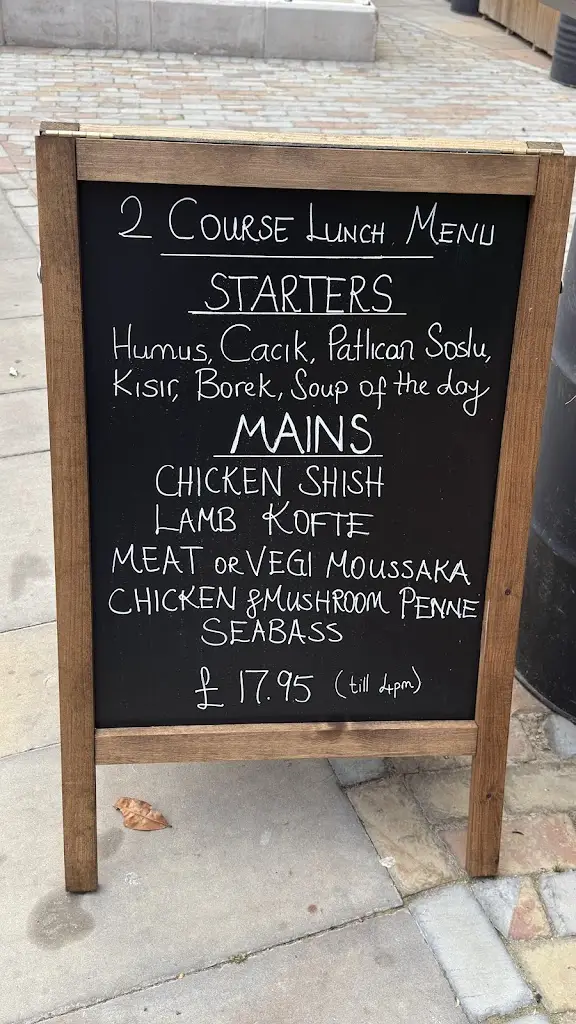 2 COURSE LUNCH MENU
STARTERS
Humus, Cacik, Patlican Soslu,
Kisir, Borek, Soup of the day
MAINS
CHICKEN SHISH
LAMB KOFTE
MEAT OR VEGI MOUSSAKA
CHICKEN & MUSHROOM PENNE
SEABASS
£ 17.95 (till 4pm)